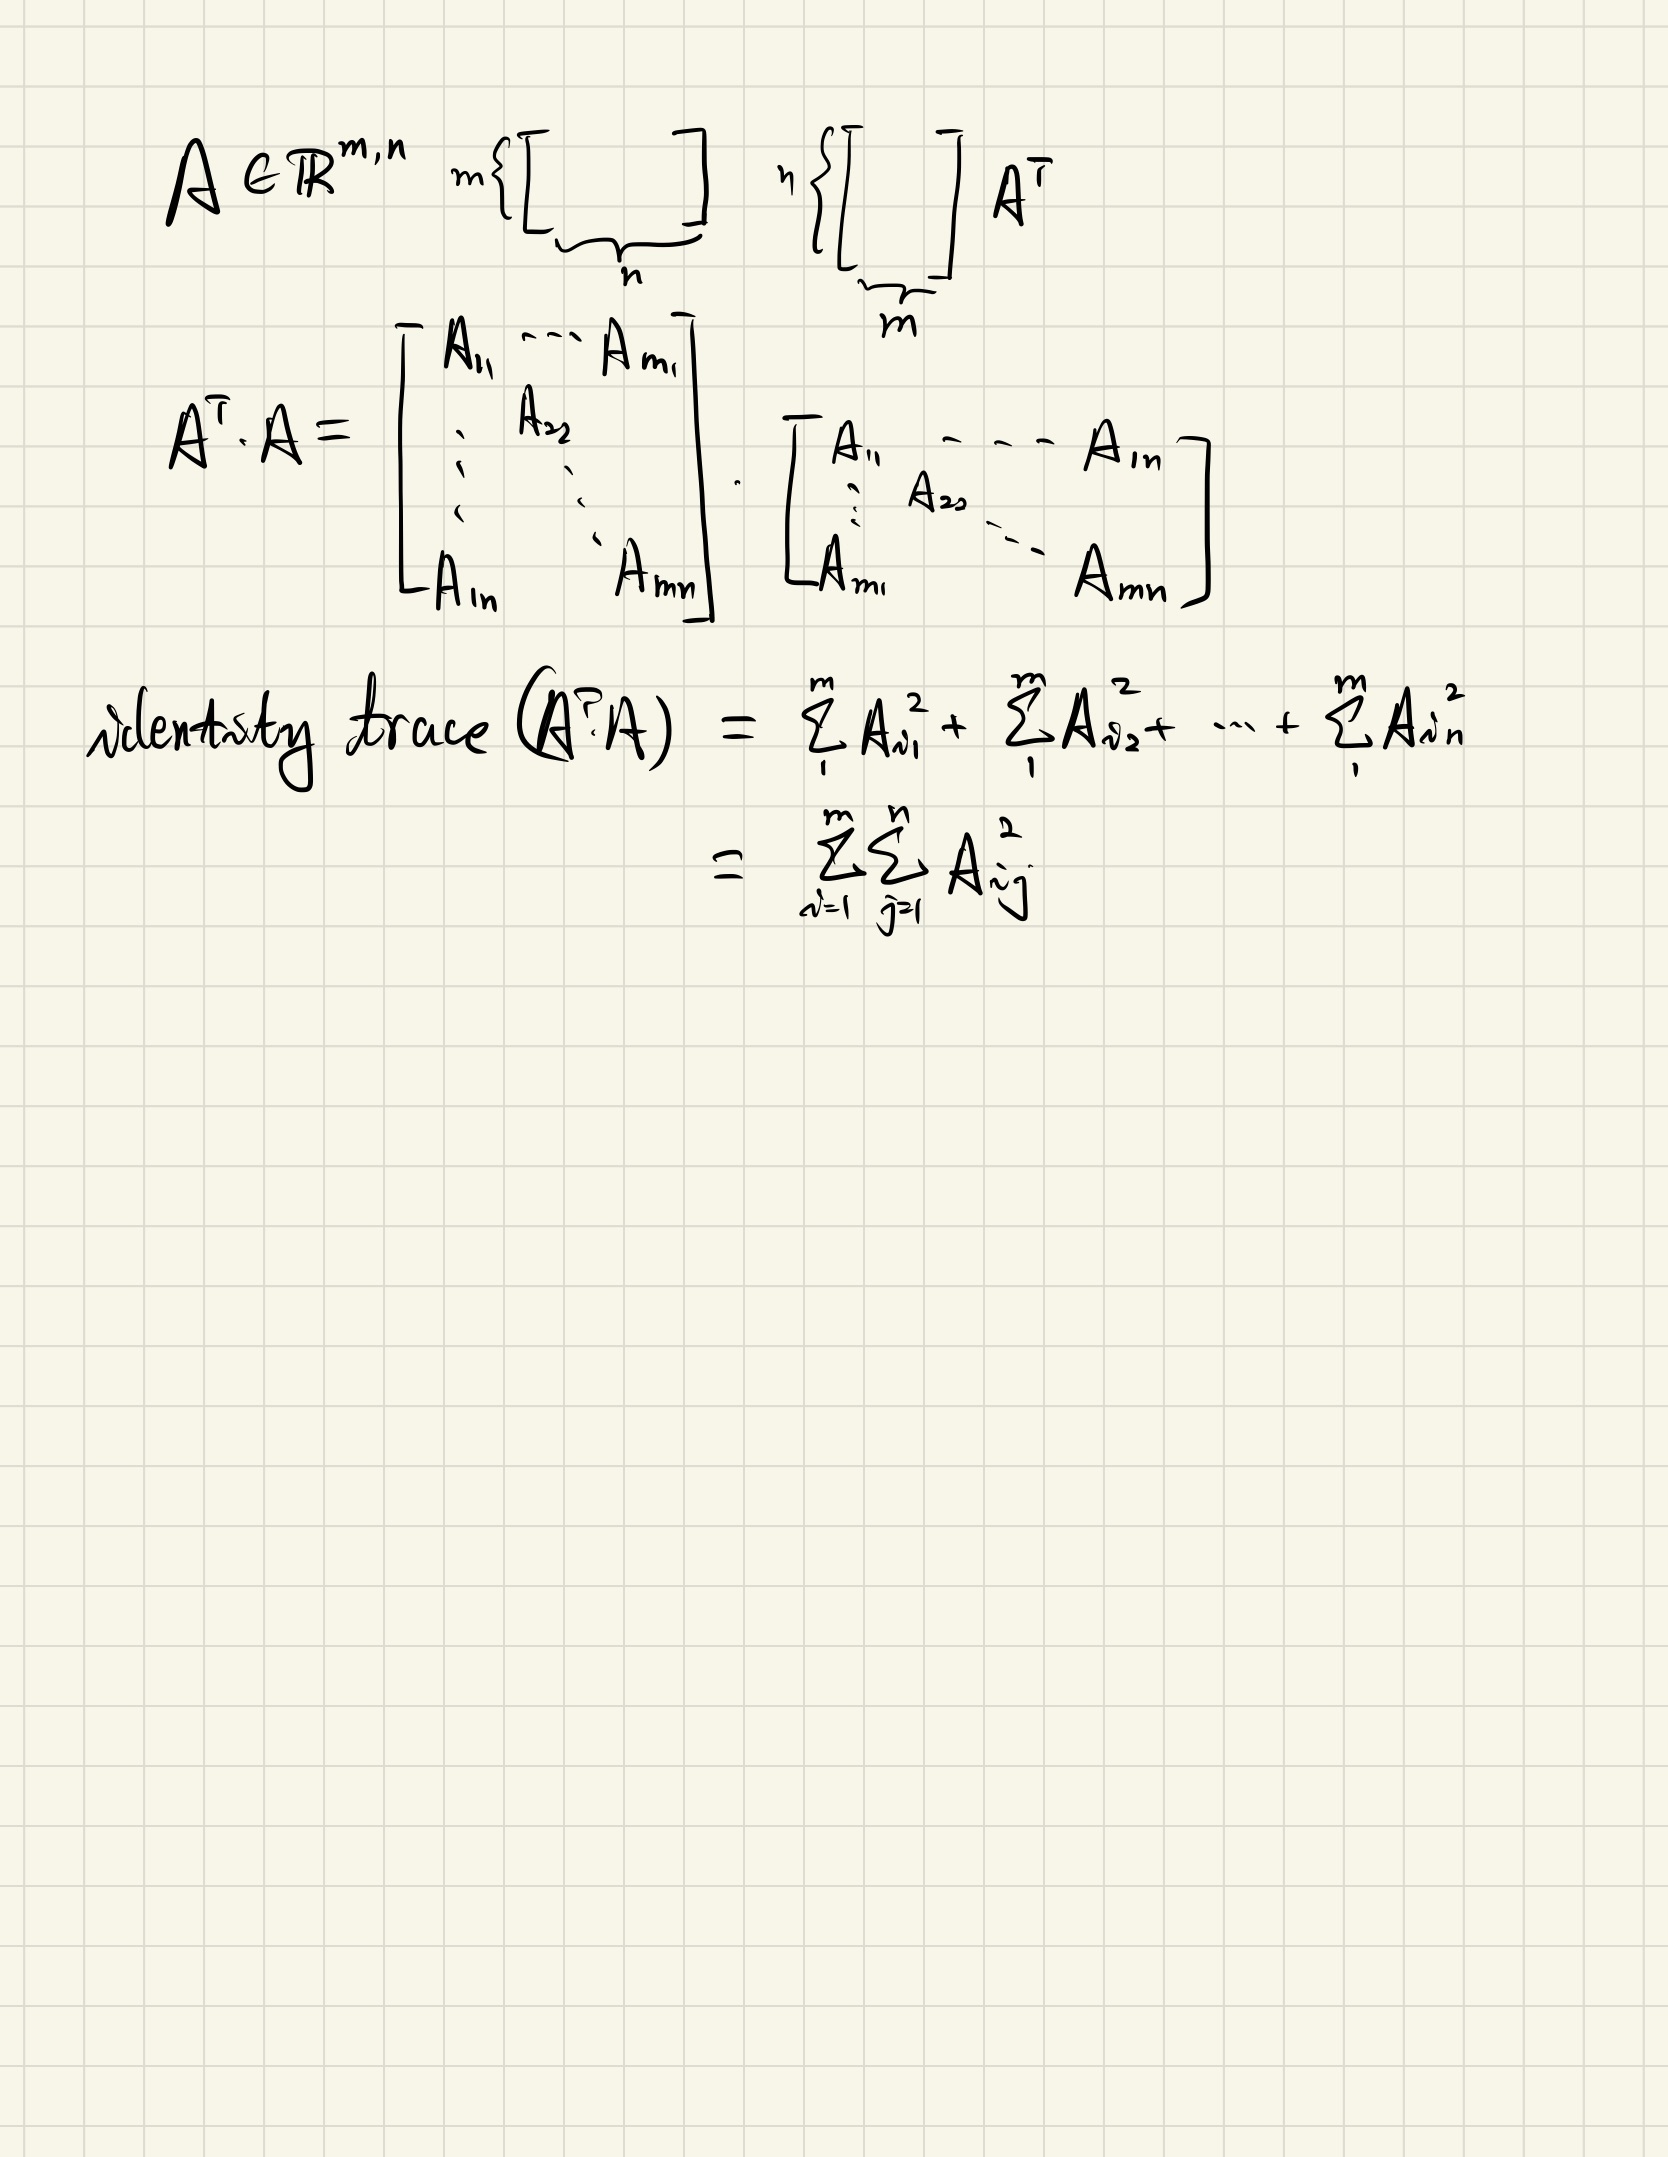 A ∈ ℝ^{m,n} m{[ ]} n n{[ ]} m A^T
A^T · A = [A_{11} --- A_{m1} A_{22} ⋱ ⋮ A_{1n} A_{mn}] · [A_{11} --- A_{1n} ⋮ A_{22} ⋱ A_{m1} A_{mn}]
identity trace (A^T·A) = ∑_{1}^{m} A_{i1}^2 + ∑_{1}^{m} A_{i2}^2 + ⋯ + ∑_{1}^{m} A_{in}^2
= ∑_{i=1}^{m} ∑_{j=1}^{n} A_{ij}^2